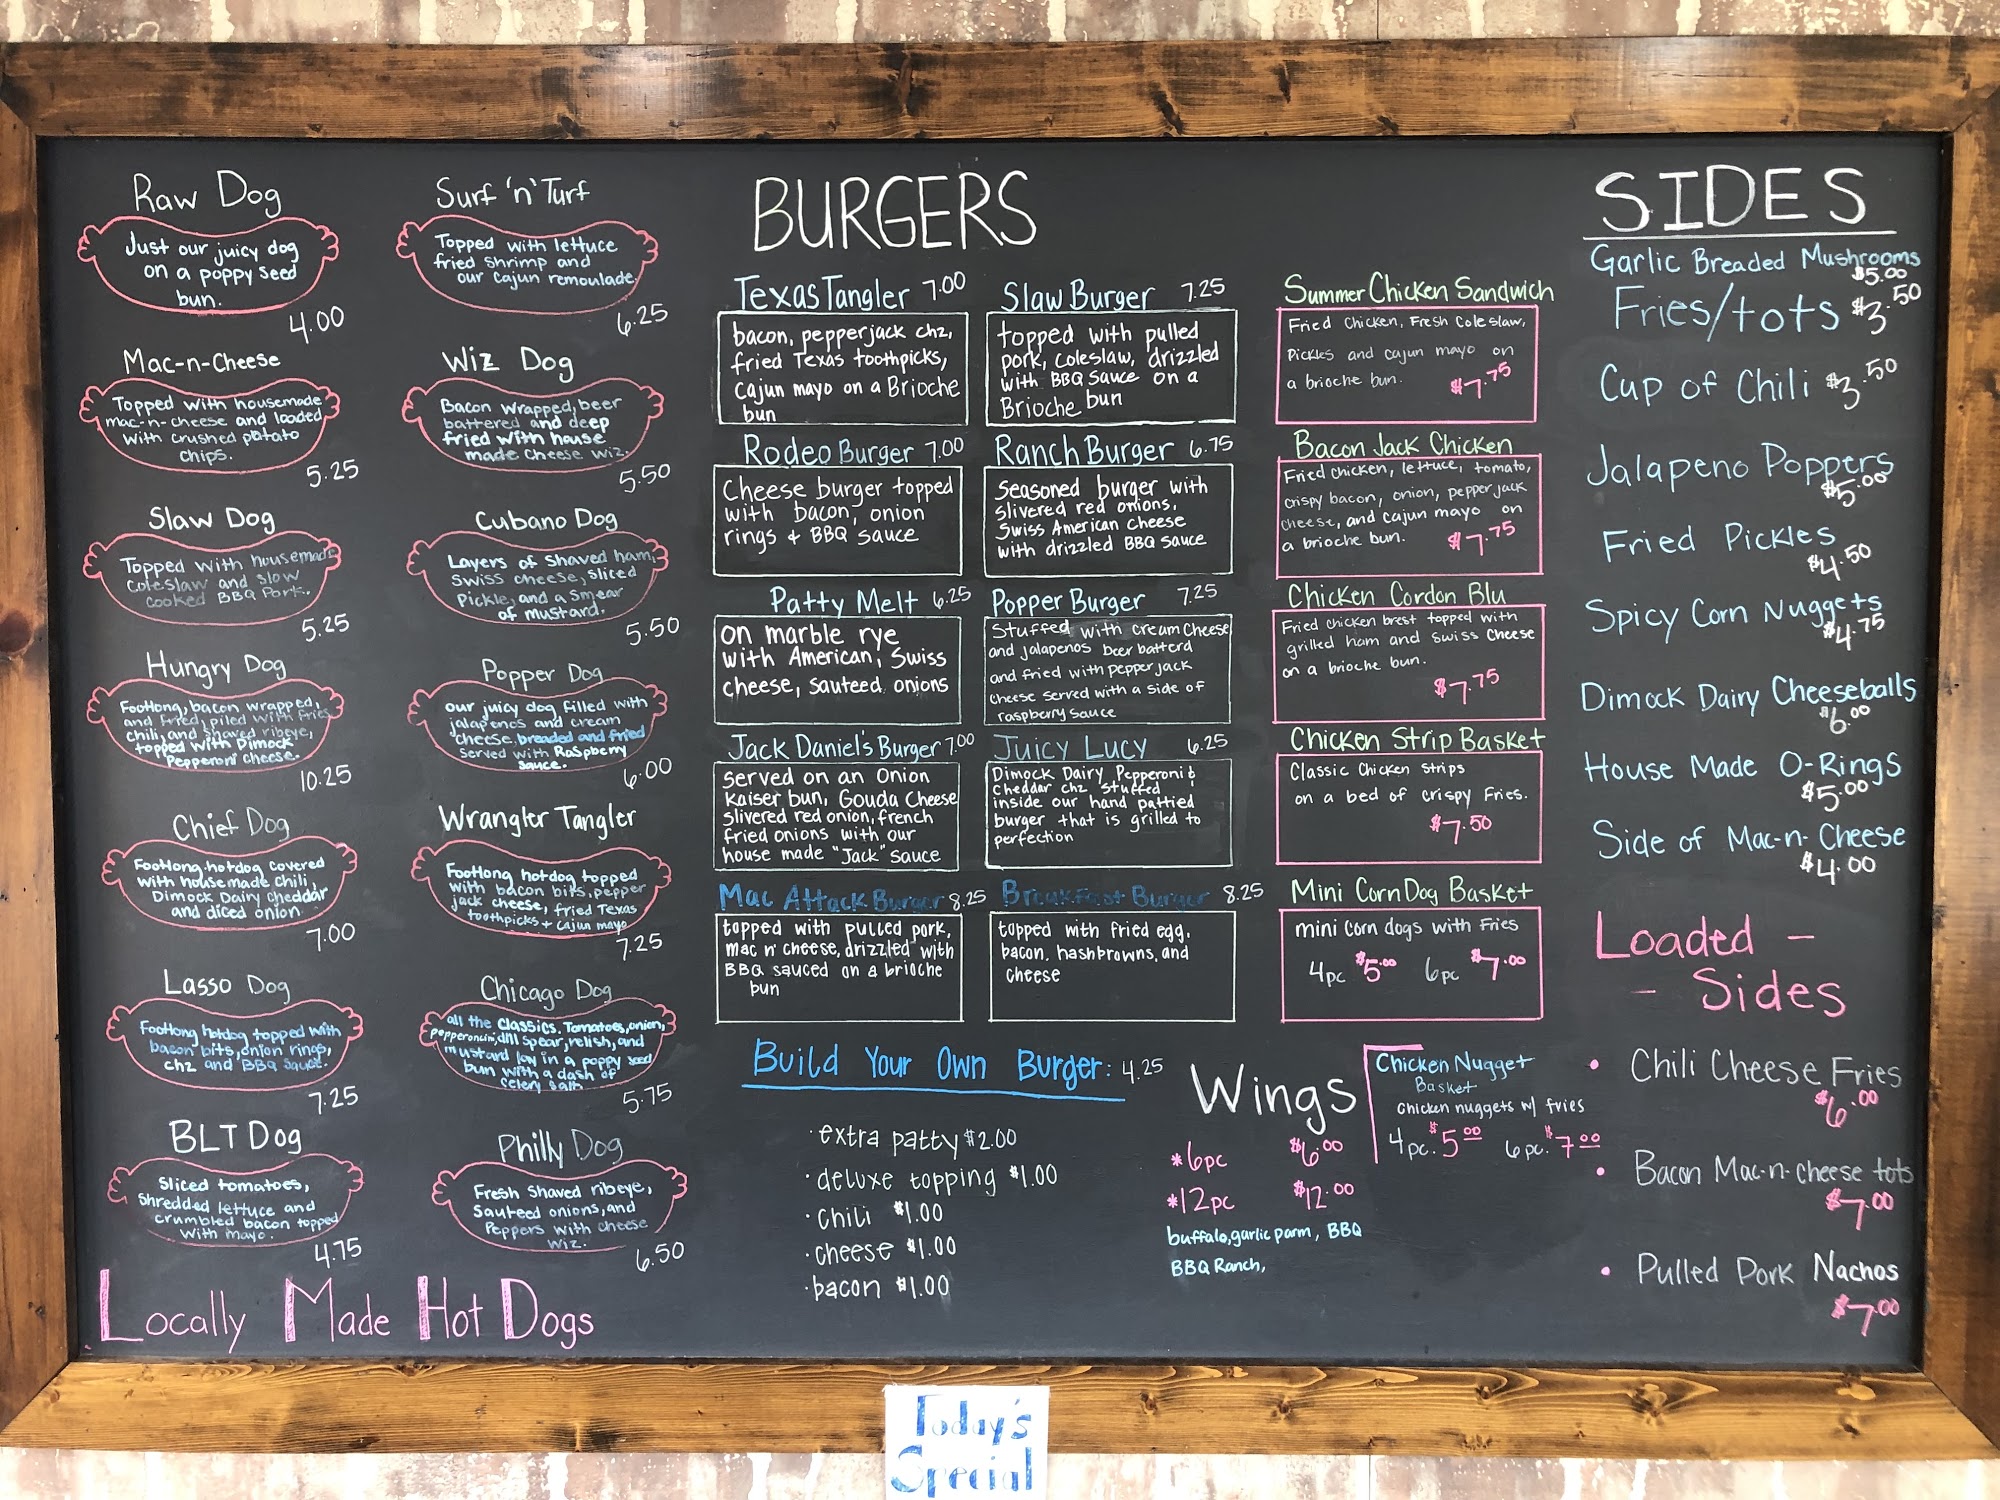 Raw Dog
Just our juicy dog
on a poppy seed
bun.
4.00
Mac-n-Cheese
Topped with housemade
mac-n-cheese and loaded
with crushed potato
chips.
5.25
Slaw Dog
Topped with housemade
coleslaw and slow
cooked BBQ Pork.
5.25
Hungry Dog
Footlong, bacon wrapped,
and fried, piled with fries
chili, and shaved ribeye,
topped with Dimock
Pepperoni cheese.
10.25
Chief Dog
Footlong hotdog covered
with housemade chili,
Dimock Dairy cheddar
and diced onion
7.00
Lasso Dog
Footlong hotdog topped with
bacon bits, onion rings,
chz and BBQ sauce.
7.25
BLT Dog
Sliced tomatoes,
shredded lettuce and
crumbled bacon topped
with mayo.
4.75
Surf 'n' Turf
Topped with lettuce
fried shrimp and
our Cajun remoulade.
6.25
Wiz Dog
Bacon wrapped, beer
battered and deep
fried with house
made cheese wiz.
5.50
Cubano Dog
Layers of shaved ham,
Swiss cheese, sliced
Pickle, and a smear
of mustard.
5.50
Popper Dog
our juicy dog filled with
jalapenos and cream
cheese, breaded and fried
served with Raspberry
sauce.
6.00
Wrangler Tangler
Footlong hotdog topped
with bacon bits, pepper
jack cheese, fried Texas
toothpicks + cajun mayo
7.25
Chicago Dog
all the classics. Tomatoes, onion,
pepperoncini, dill spear, relish, and
mustard lay in a poppy seed
bun with a dash of
celery salt.
5.75
Philly Dog
Fresh shaved ribeye,
Sauteed onions, and
Peppers with cheese
wiz.
6.50
Locally Made Hot Dogs
BURGERS
Texas Tangler 7.00
bacon, pepperjack chz,
fried Texas toothpicks,
Cajun mayo on a Brioche
bun
Rodeo Burger 7.00
Cheese burger topped
with bacon, onion
rings & BBQ sauce
Patty Melt 6.25
on marble rye
with American, Swiss
cheese, sauteed onions
Jack Daniel's Burger 7.00
served on an Onion
Kaiser bun, Gouda Cheese
slivered red onion, french
fried onions with our
house made "Jack" sauce
Mac Attack Burger 8.25
topped with pulled pork,
mac n' cheese, drizzled with
BBQ sauced on a brioche
bun
Slaw Burger 7.25
topped with pulled
pork, coleslaw, drizzled
with BBQ sauce on a
Brioche bun
Ranch Burger 6.75
Seasoned burger with
slivered red onions,
Swiss American cheese
with drizzled BBQ sauce
Popper Burger 7.25
Stuffed with cream cheese
and jalapenos beer batterd
and fried with pepper jack
cheese served with a side of
raspberry sauce
Juicy Lucy 6.25
Dimock Dairy Pepperoni &
cheddar chz stuffed
inside our hand pattied
burger that is grilled to
perfection
Breakfast Burger 8.25
topped with fried egg,
bacon, hashbrowns, and
cheese
Build Your Own Burger: 4.25
· extra patty $2.00
· deluxe topping $1.00
· chili $1.00
· cheese $1.00
· bacon $1.00
Summer Chicken Sandwich
Fried Chicken, Fresh Coleslaw,
Pickles and cajun mayo on
a brioche bun. $7.75
Bacon Jack Chicken
Fried chicken, lettuce, tomato,
crispy bacon, onion, pepperjack
cheese, and cajun mayo on
a brioche bun. $7.75
Chicken Cordon Blu
Fried chicken brest topped with
grilled ham and Swiss cheese
on a brioche bun.
$7.75
Chicken Strip Basket
Classic Chicken Strips
on a bed of crispy Fries.
$7.50
Mini Corn Dog Basket
mini corn dogs with Fries
4pc $5.00 6pc $7.00
Wings
*6pc $6.00
*12pc $12.00
buffalo, garlic parm, BBQ
BBQ Ranch,
Chicken Nugget
Basket
chicken nuggets w/ fries
4pc. $5.00 6pc. $7.00
SIDES
Garlic Breaded Mushrooms
$5.00
Fries/tots $3.50
Cup of Chili $3.50
Jalapeno Poppers
$5.00
Fried Pickles
$4.50
Spicy Corn Nuggets
$4.75
Dimock Dairy Cheeseballs
$6.00
House Made O-Rings
$5.00
Side of Mac-n-Cheese
$4.00
Loaded -
- Sides
• Chili Cheese Fries
$6.00
• Bacon Mac-n-cheese tots
$7.00
• Pulled Pork Nachos
$7.00
Today's
Special